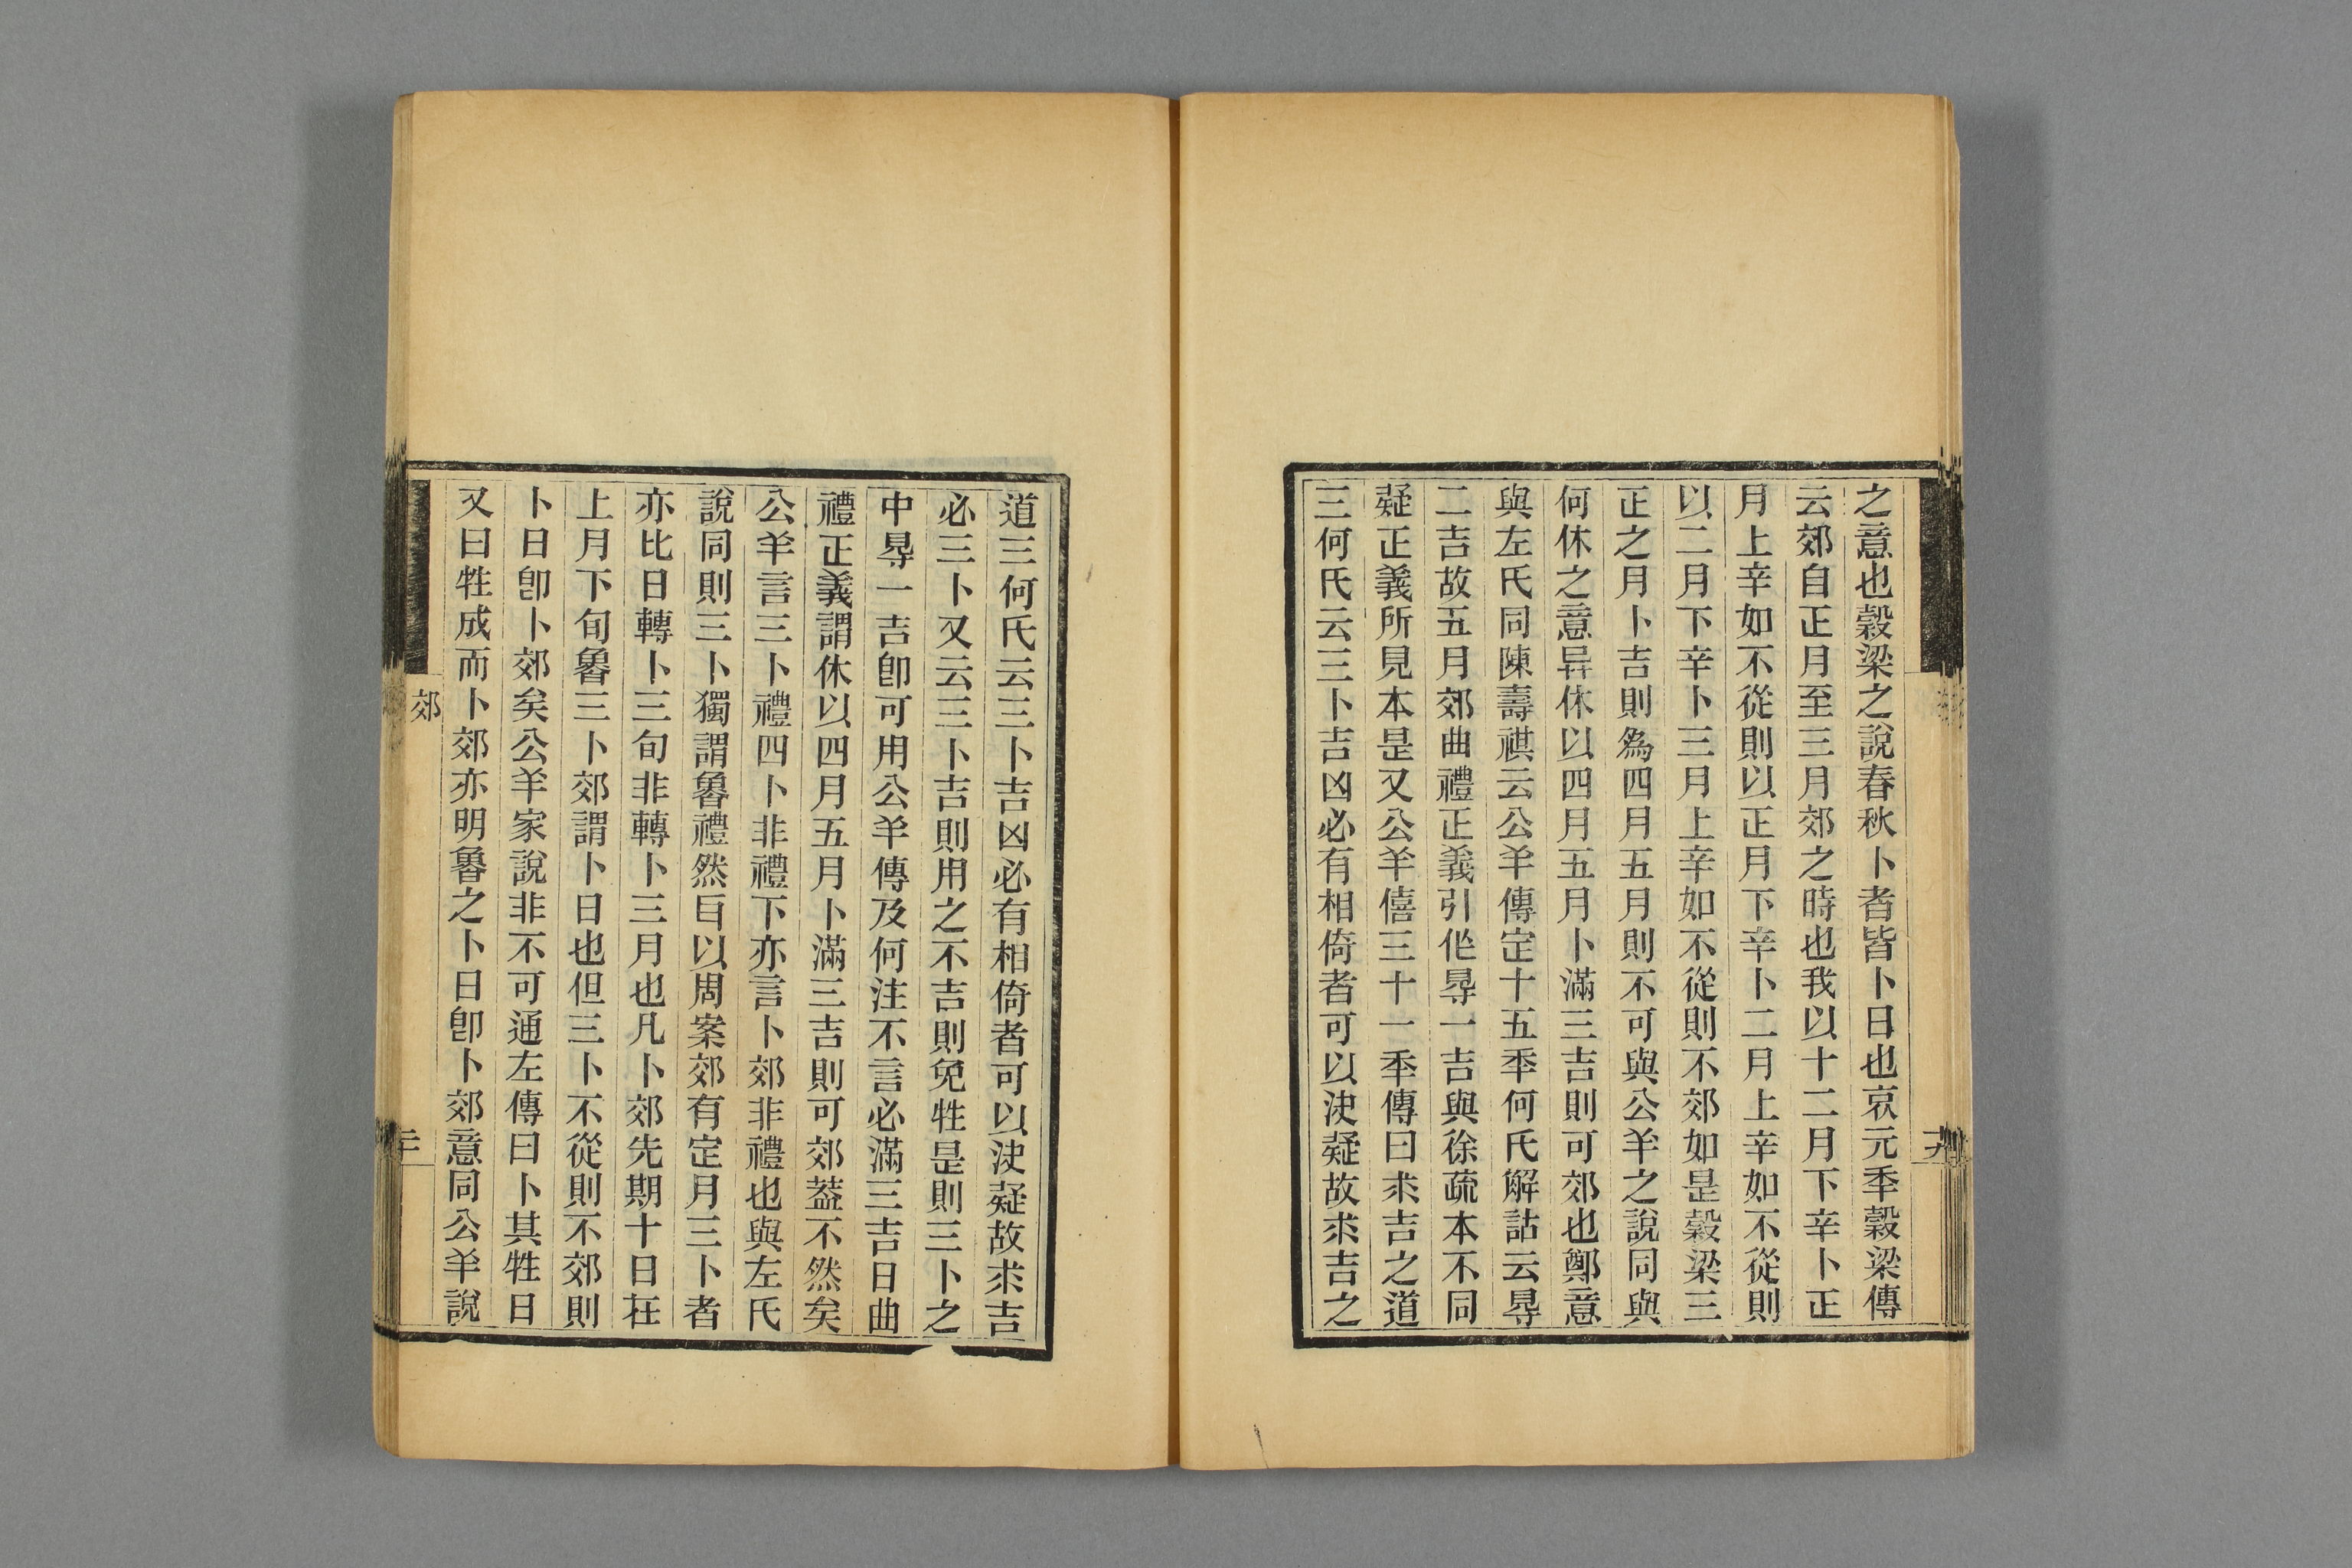 之意也穀梁之說春秋卜者皆卜日也哀元秊穀梁傳
云郊自正月至三月郊之時也我以十二月下辛卜正
月上辛如不從則以正月下辛卜二月上辛如不從則
以二月下辛卜三月上辛如不從則不郊如是穀梁三
正之月卜吉則為四月五月則不可與公羊之說同與
何休之意异休以四月五月卜滿三吉則可郊也鄭意
與左氏同陳壽祺云公羊傳定十五秊何氏解詁云㝵
二吉故五月郊曲禮正義引作㝵一吉與徐疏本不同
疑正義所見本是又公羊僖三十一秊傳曰求吉之道
三何氏云三卜吉凶必有相倚者可以決疑故求吉之
道三何氏云三卜吉凶必有相倚者可以決疑故求吉
必三卜又云三卜吉則用之不吉則免牲是則三卜之
中㝵一吉卽可用公羊傳及何注不言必滿三吉日曲
禮正義謂休以四月五月卜滿三吉則可郊蓋不然矣
公羊言三卜禮四卜非禮下亦言卜郊非禮也與左氏
說同則三卜獨謂魯禮然𦣞以周案郊有定月三卜者
亦比日轉卜三旬非轉卜三月也凡卜郊先期十日在
上月下旬魯三卜郊謂卜日也但三卜不從則不郊則
卜日卽卜郊矣公羊家說非不可通左傳曰卜其牲日
又曰牲成而卜郊亦明魯之卜日卽卜郊意同公羊說
郊